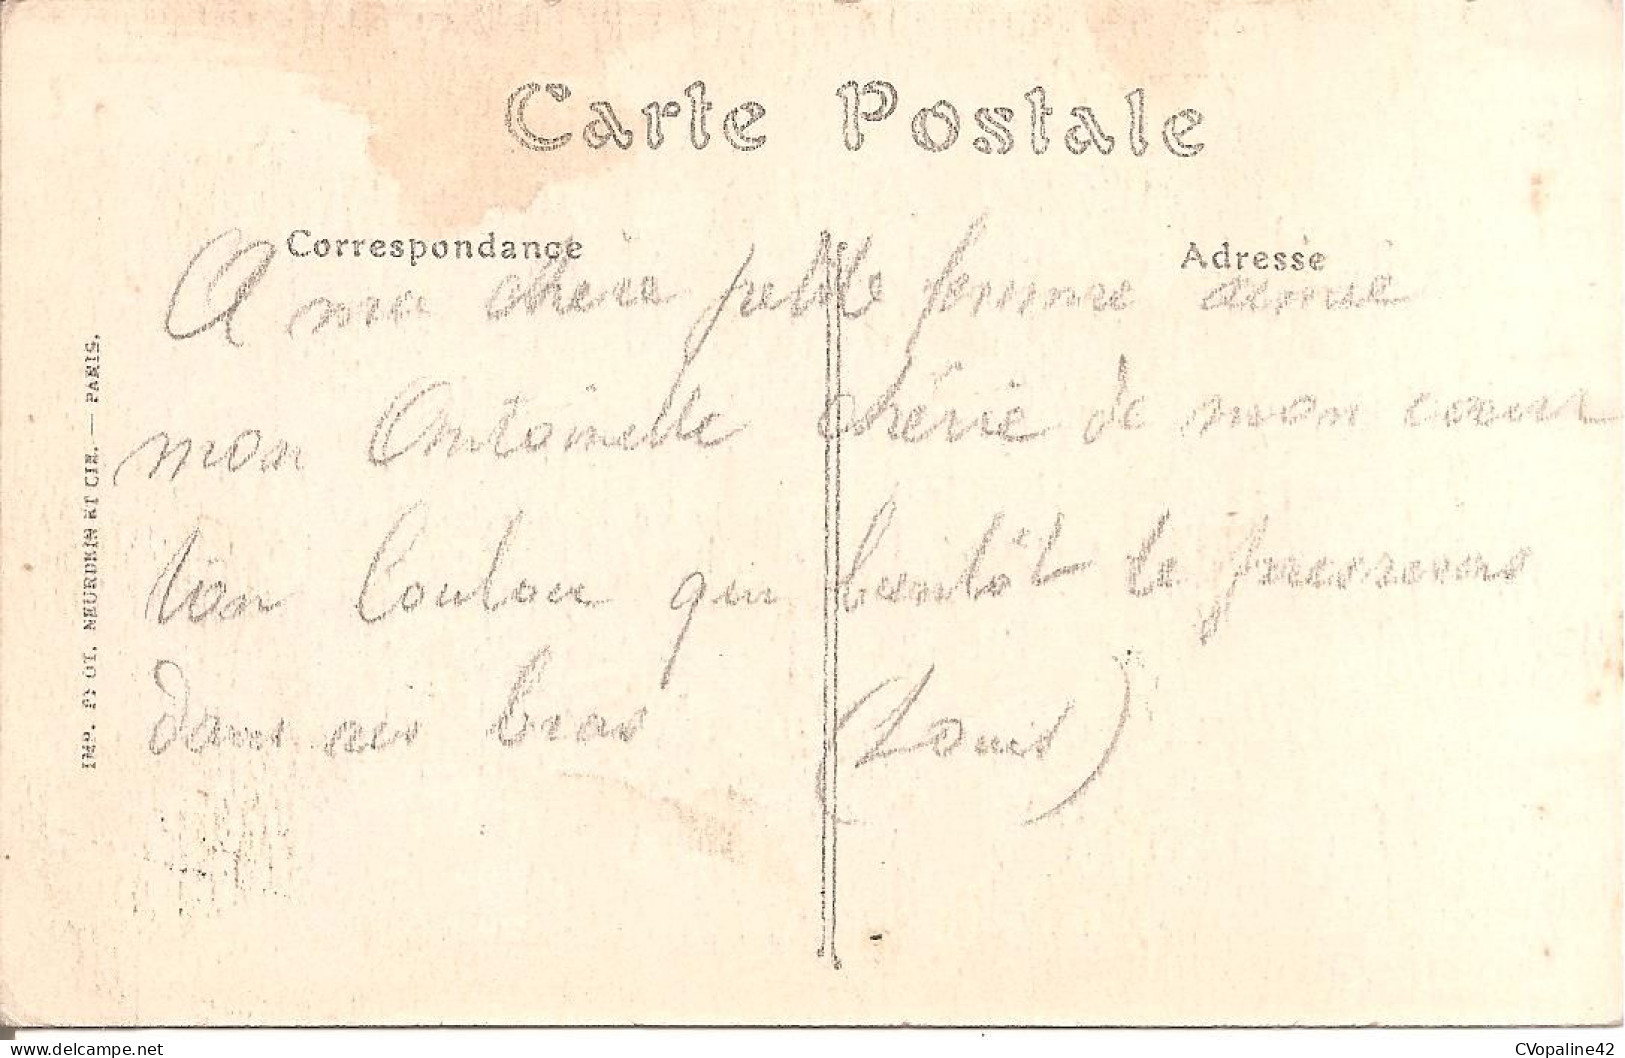 Carte Postale
Correspondance
Adresse
A ma chère petite femme aimé
mon Antoinette chérie de mon cœur
ton Loulou qui bientôt te pressera
dans ses bras (Louis)
IMP. PHOT. NEURDEIN ET CIE. — PARIS.
CVopaline42
delcampe.net